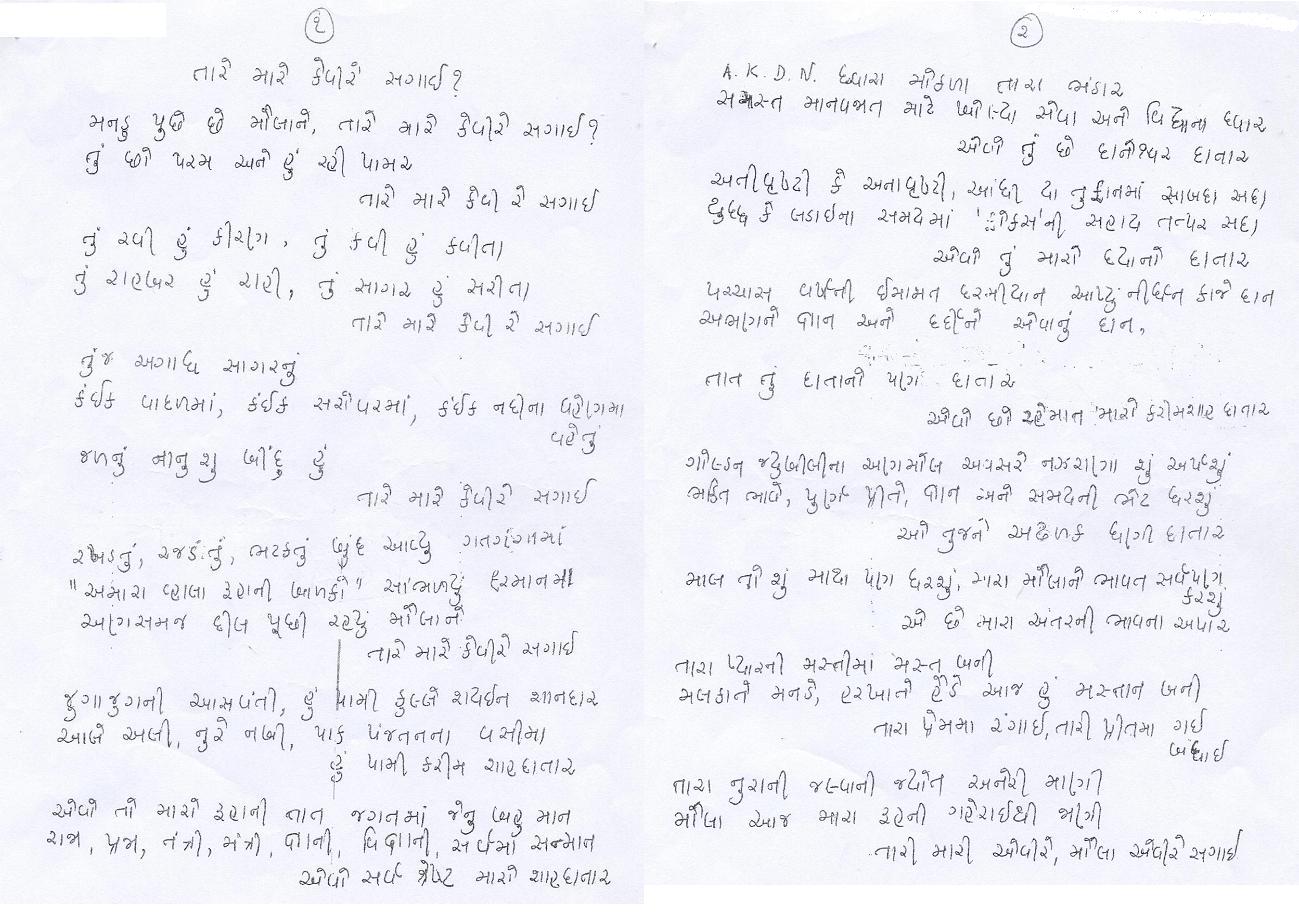 ૧
તારે મારે કેવીરે સગાઈ?
મનડુ પુછે છે મૌલાને, તારે મારે કેવીરે સગાઈ?
તું છો પરમ અને હું રહી પામર
તારે મારે કેવી રે સગાઈ
તું રવી હું કીરણ, તું કવી હું કવીતા
તું રાહબર હું રાહી, તું સાગર હું સરીતા
તારે મારે કેવી રે સગાઈ
તુંજ અગાધ સાગરનું
કંઈક વાદળમાં, કંઈક સરોવરમાં, કંઈક નદીના વહેણમા
વહેતું
જળનું નાનુ શુ બીંદુ હું
તારે મારે કેવીરે સગાઈ
રખડતું, રજડતું, ભટકતું બુંદ આવ્યુ ગતગંગામાં
"અમારા વ્હાલા રૂહાની બાળકો" સાંભળ્યું ફરમાનમાં
અણસમજ દીલ પૂછી રહ્યું મૌલાને
તારે મારે કેવીરે સગાઈ
જુગાજુગની આસવંતી, હું પામી કુલ્લે શયઈન શાનદાર
આલે અલી, નુરે નબી, પાક પંજતનના વસીમા
હું પામી કરીમ શાહદાતાર
એવો તો મારો રૂહાની તાત જગતમાં જેનુ બહુ માન
રાજા, પ્રજા, તંત્રી, મંત્રી, જ્ઞાની, વિજ્ઞાની, સર્વેમાં સન્માન
એવો સર્વ શ્રેષ્ટ મારો શાહદાતાર
૨
A. K. D. N. ધ્વારા મોકળા તારા ભંડાર
સમસ્ત માનવજાત માટે ખોલ્યા સેવા અને વિદ્યાના ધ્વાર
એવો તું છે દાનેશ્વર દાતાર
અતીવૃષ્ટી કે અનાવૃષ્ટી, આંધી યા તુફાનમાં સાબદા સદા
યુધ્ધ કે લડાઈના સમયમાં 'ફોકસ'ની સહાય તત્પર સદા
એવો તું મારો દયાનો દાતાર
પચ્ચાસ વર્ષની ઈમામત દરમીયાન આપ્યું નીર્ધન કાજે દાન
અભણને જ્ઞાન અને દર્દીને એવાનું દાન,
તાત તું દાતાનો પણ દાતાર
એવો છો રહેમાત મારો કરીમશાહ દાતાર
ગોલ્ડન જ્યુબીલીના અણમોલ અવસરે નઝરાણા શું અર્પશું
ભક્તિ ભાવે, પુર્ણ પ્રીતે, જ્ઞાન અને સમયની ભેટ ધરશું
ઓ તુજને અઢળક ધણી દાતાર
માલ તો શું માથા પણ ધરશું, મારા મૌલાને ભાવત સર્વપણ
કરશું
એ છે મારા અંતરની ભાવના અપાર
તારા પ્યારની મસ્તીમાં મસ્ત બની
મલકાતે મનડે, હરખાતે હૈડે આજ હું મસ્તાન બની
તારા પ્રેમમા રંગાઈ, તારી પ્રીતમા ગઈ
બંધાઈ
તારા નુરાની જલ્વાની જ્યોત અનેરી માણી
મૌલા આજ મારા રૂહની ગહેરાઈથી જાણી
તારી મારી એવીરે, મૌલા એવીરે સગાઈ